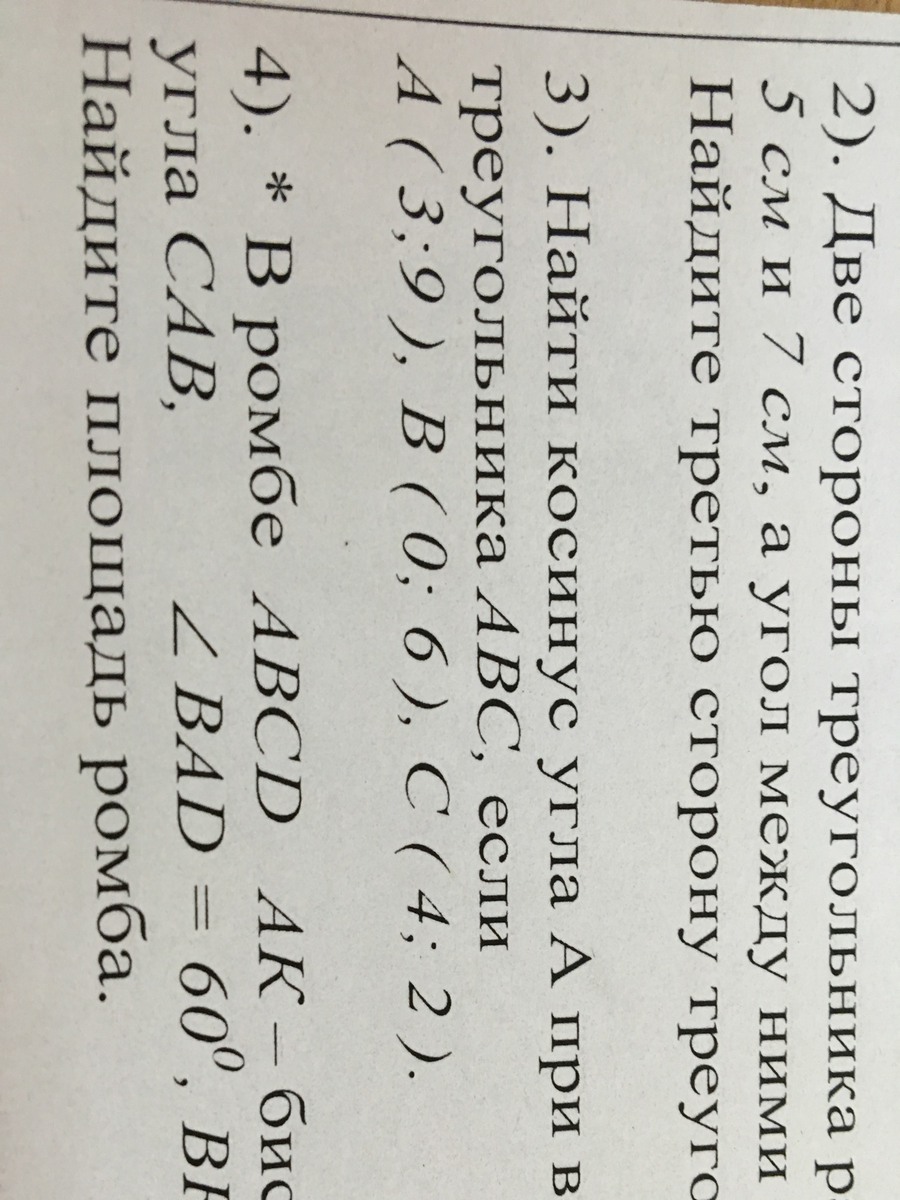 2). Две стороны треугольника р
5 см и 7 см, а угол между ними
Найдите третью сторону треуго
3). Найти косинус угла А при в
треугольника ABC, если
A ( 3;9 ), B ( 0; 6 ), C ( 4; 2 ).
4). * В ромбе ABCD AK – бис
угла CAB, ∠ BAD = 60⁰, BK
Найдите площадь ромба.